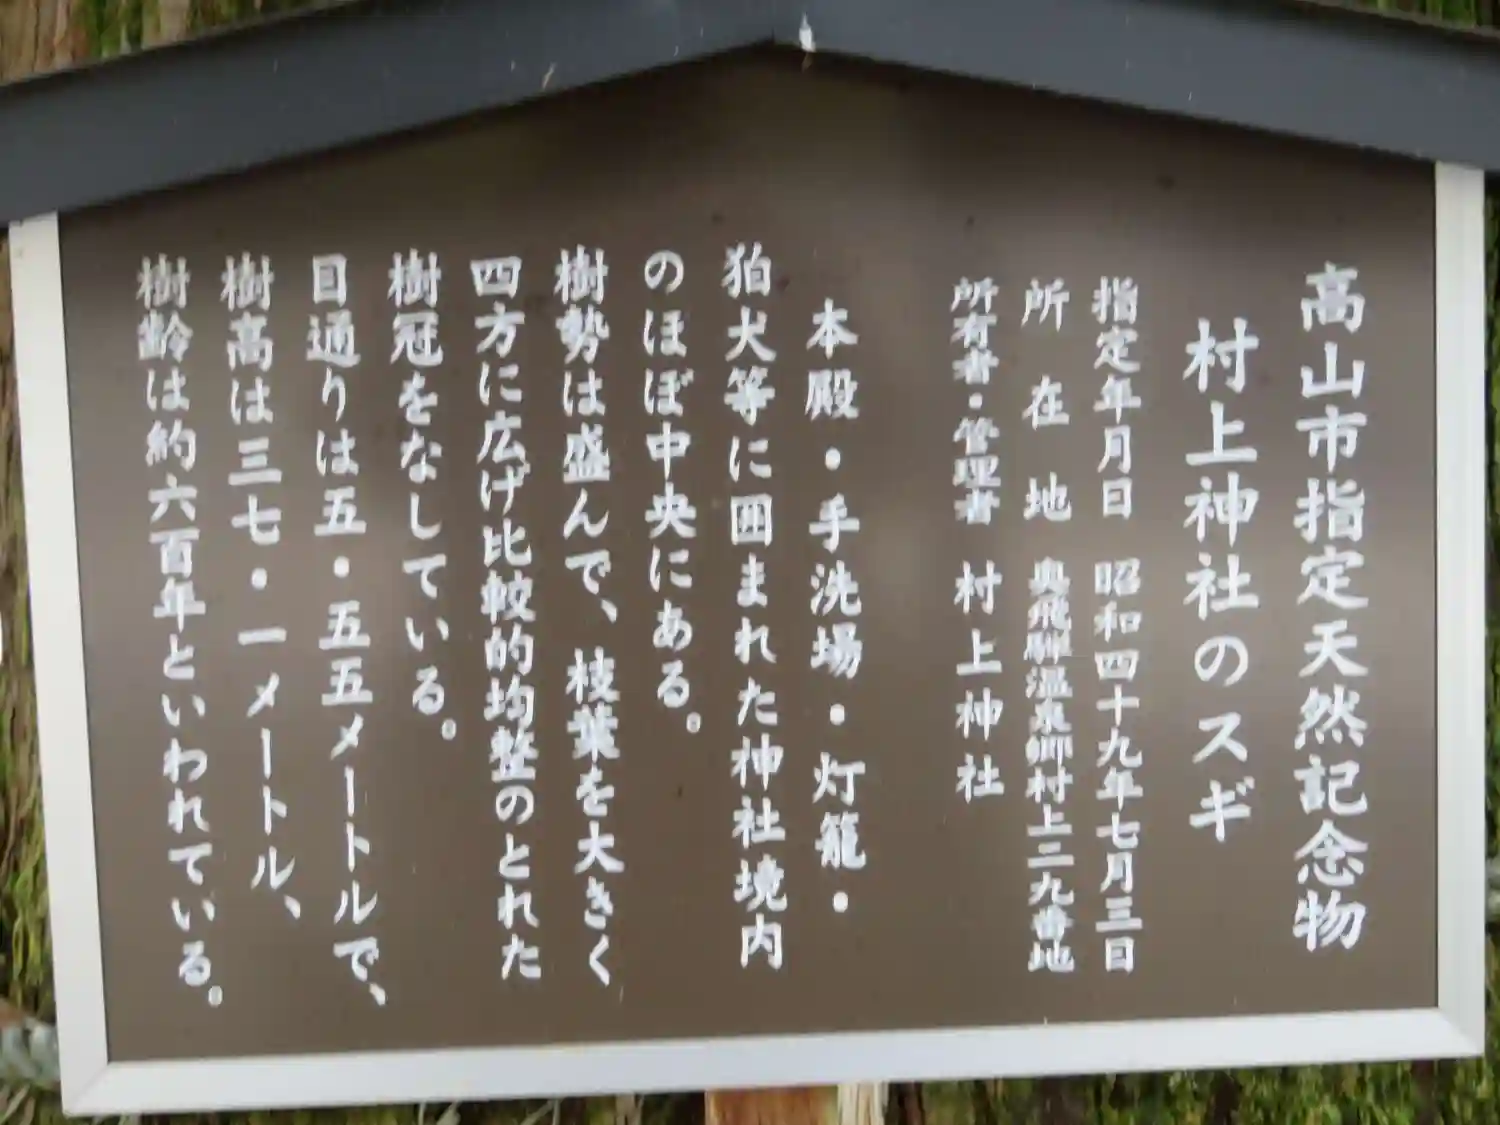 高山市指定天然記念物
村上神社のスギ
指定年月日 昭和四十九年七月三日
所在地 奥飛騨温泉郷村上二九番地
所有者・管理者 村上神社
本殿・手洗場・灯籠・
狛犬等に囲まれた神社境内
のほぼ中央にある。
樹勢は盛んで、枝葉を大きく
四方に広げ比較的均整のとれた
樹冠をなしている。
目通りは五・五五メートルで、
樹高は三七・一メートル、
樹齢は約六百年といわれている。